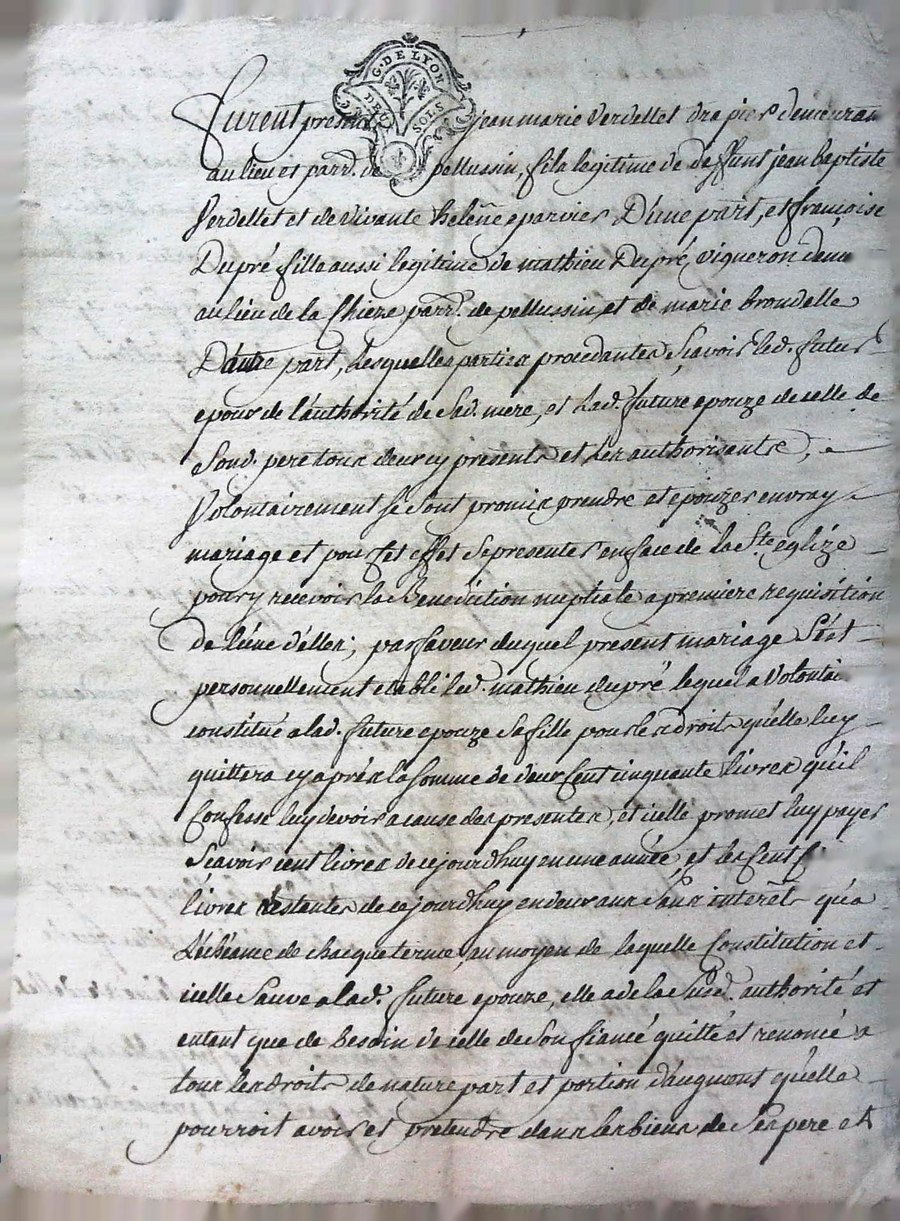 G. DE LYON
DEUX SOLS
furent presents jean marie Verdellet drapier demeuran
au lieu et parr. de pellussin, fils legitime de deffunt jean baptiste
Verdellet et de vivante heleine eparvier D'une part, et françoise
Dupré fille aussi legitime de mathieu Dupré, vigneron dem
au lieu de la Chieze parr. de pellussin et de marie brondelle
D'autre part, Lesquelles parties procedantes Sçavoir led. futur
epoux de l'authorité de Sad. mere, et Lad. future epouze de celle de
Sond. pere tous deux cy presents et Les authorisents,
Volontairement se Sont promis prendre et epouzer en vray
mariage et pour Cet effet Se presenter en face de la Ste. eglize
pour y recevoir la Benediction nuptiale a premiere requisition
de L'une d'elles; par faveur duquel present mariage S'est
personnellement etabli led. mathieu dupré lequel a Volontai
constitué a lad. future epouze Sa fille pour les droits qu'elle luy
quittera cy après la Somme de deux Cent cinquante livres qu'il
Confesse luy devoir a cause des presentes, et icelle promet luy payer
Scavoir cent livres de ce jourdhuy en une année, et les Cent
livres restantes de ce jourdhuy en deux ans Sans interêt qu'a
L'echéance de chacque terme, au moyen de laquelle Constitution et
icelle Sauve a lad. future epouze, elle a de la Susd. authorité et
entant que de besoin de celle de Son fiancé quitté et renoncé a
tous les droits de nature part et portion d'augment qu'elle
pourroit avoir et pretendre dans les biens de Ses pere et